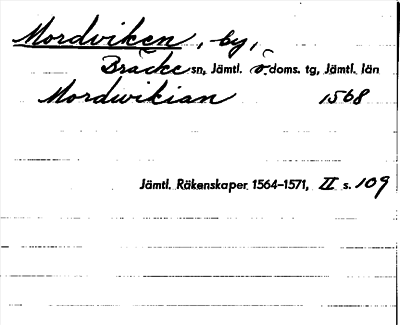 Mordviken, by,
Bräcke sn, Jämtl. ö. doms. tg, Jämtl. län
Mordwikian 1568
Jämtl. Räkenskaper 1564-1571, II s. 109